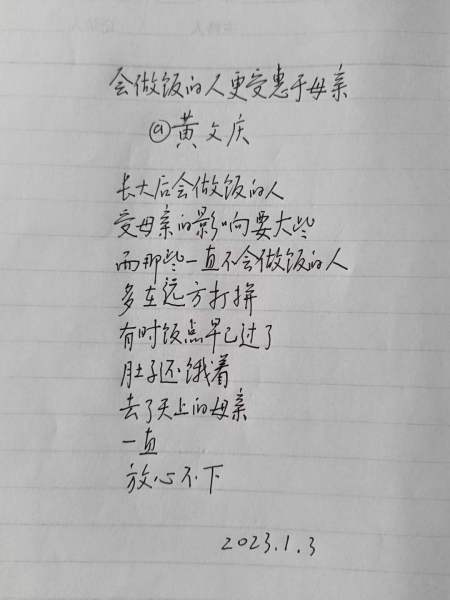 会做饭的人更受惠于母亲
@黄文庆
长大后会做饭的人
受母亲的影响要大些
而那些一直不会做饭的人
多在远方打拼
有时饭点早已过了
肚子还饿着
去了天上的母亲
一直
放心不下
2023.1.3